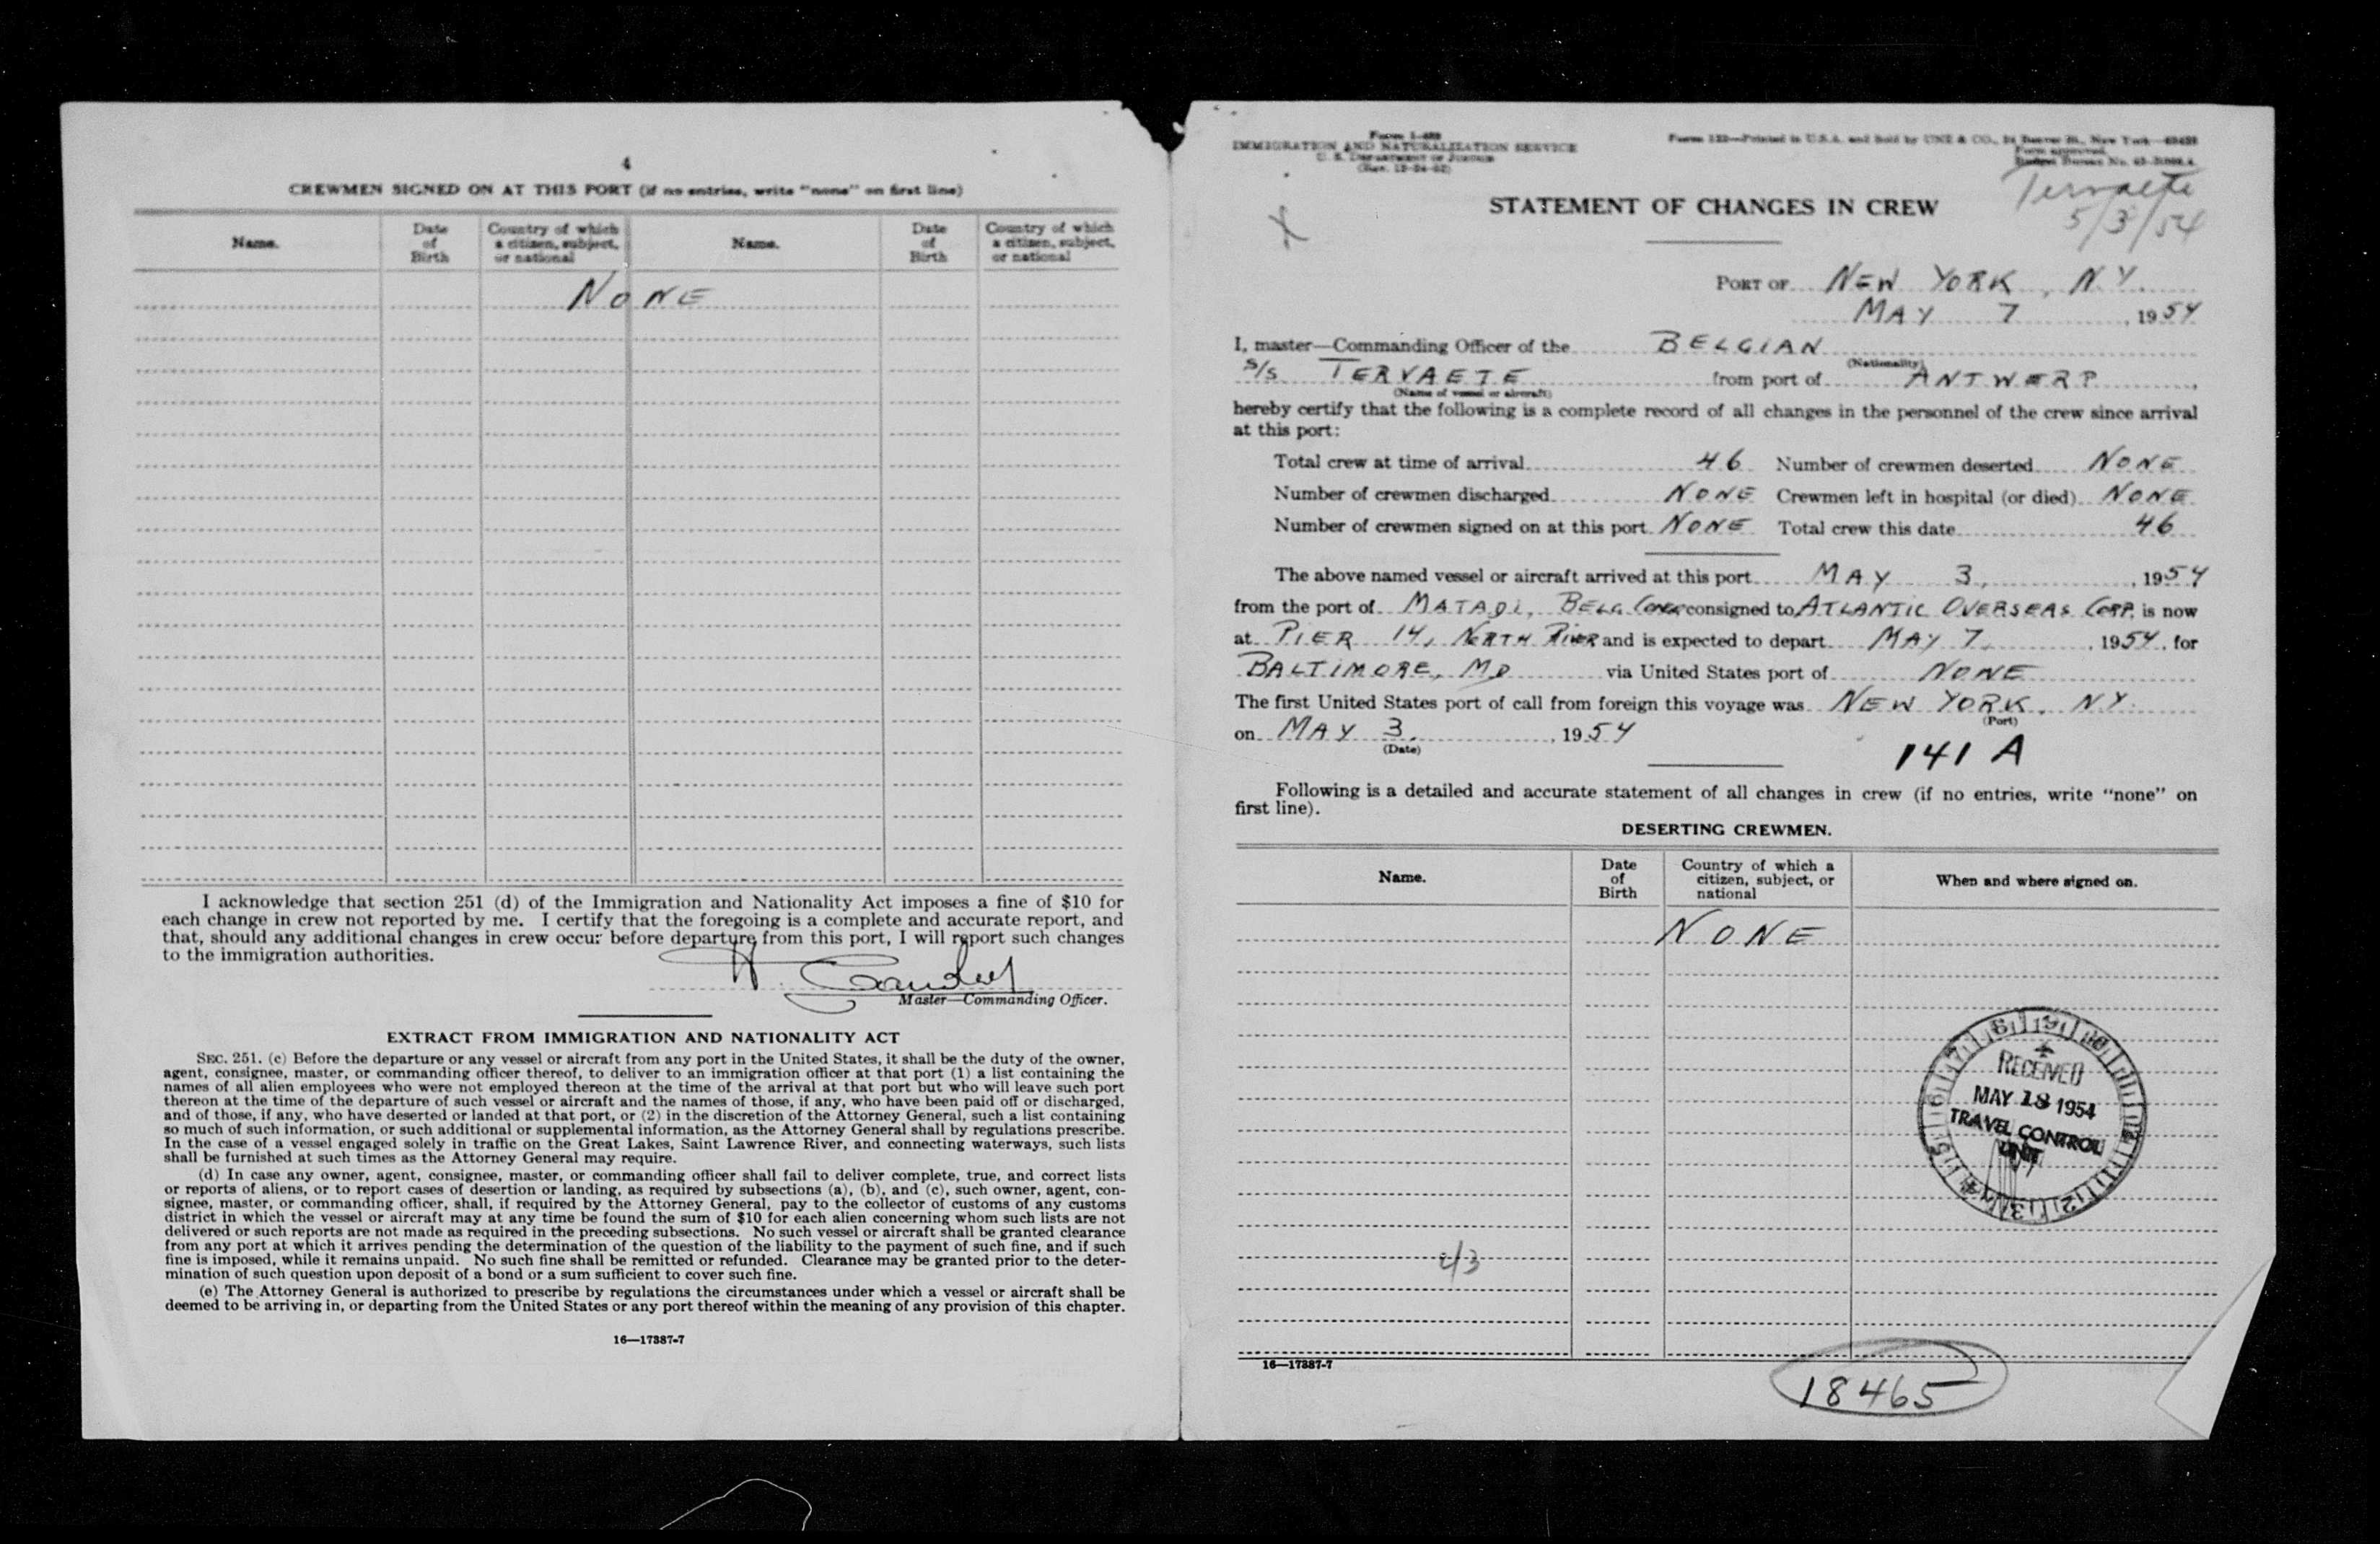 4
CREWMEN SIGNED ON AT THIS PORT (if no entries, write "none" on first line)
Name. Date of Birth Country of which a citizen, subject, or national Name. Date of Birth Country of which a citizen, subject, or national
NONE
I acknowledge that section 251 (d) of the Immigration and Nationality Act imposes a fine of $10 for
each change in crew not reported by me. I certify that the foregoing is a complete and accurate report, and
that, should any additional changes in crew occur before departure from this port, I will report such changes
to the immigration authorities.
Master—Commanding Officer.
EXTRACT FROM IMMIGRATION AND NATIONALITY ACT
SEC. 251. (c) Before the departure or any vessel or aircraft from any port in the United States, it shall be the duty of the owner,
agent, consignee, master, or commanding officer thereof, to deliver to an immigration officer at that port (1) a list containing the
names of all alien employees who were not employed thereon at the time of the arrival at that port but who will leave such port
thereon at the time of the departure of such vessel or aircraft and the names of those, if any, who have been paid off or discharged,
and of those, if any, who have deserted or landed at that port, or (2) in the discretion of the Attorney General, such a list containing
so much of such information, or such additional or supplemental information, as the Attorney General shall by regulations prescribe.
In the case of a vessel engaged solely in traffic on the Great Lakes, Saint Lawrence River, and connecting waterways, such lists
shall be furnished at such times as the Attorney General may require.
(d) In case any owner, agent, consignee, master, or commanding officer shall fail to deliver complete, true, and correct lists
or reports of aliens, or to report cases of desertion or landing, as required by subsections (a), (b), and (c), such owner, agent, con-
signee, master, or commanding officer, shall, if required by the Attorney General, pay to the collector of customs of any customs
district in which the vessel or aircraft may at any time be found the sum of $10 for each alien concerning whom such lists are not
delivered or such reports are not made as required in the preceding subsections. No such vessel or aircraft shall be granted clearance
from any port at which it arrives pending the determination of the question of the liability to the payment of such fine, and if such
fine is imposed, while it remains unpaid. No such fine shall be remitted or refunded. Clearance may be granted prior to the deter-
mination of such question upon deposit of a bond or a sum sufficient to cover such fine.
(e) The Attorney General is authorized to prescribe by regulations the circumstances under which a vessel or aircraft shall be
deemed to be arriving in, or departing from the United States or any port thereof within the meaning of any provision of this chapter.
16—17387-7
IMMIGRATION AND NATURALIZATION SERVICE
U. S. Department of Justice
Form approved.
Tervaete
5/3/54
X
STATEMENT OF CHANGES IN CREW
PORT OF NEW YORK, N.Y.
MAY 7, 1954
I, master—Commanding Officer of the BELGIAN
(Nationality)
S/S TERVAETE from port of ANTWERP,
(Name of vessel or aircraft)
hereby certify that the following is a complete record of all changes in the personnel of the crew since arrival
at this port:
Total crew at time of arrival 46 Number of crewmen deserted NONE
Number of crewmen discharged NONE Crewmen left in hospital (or died) NONE
Number of crewmen signed on at this port NONE Total crew this date 46
The above named vessel or aircraft arrived at this port MAY 3, , 1954
from the port of MATADI, BELG. CONGO consigned to ATLANTIC OVERSEAS CORP. is now
at PIER 14, NORTH RIVER and is expected to depart MAY 7, , 1954, for
BALTIMORE, MD via United States port of NONE
The first United States port of call from foreign this voyage was NEW YORK, N.Y.
(Port)
on MAY 3, , 1954
(Date)
141 A
Following is a detailed and accurate statement of all changes in crew (if no entries, write "none" on
first line).
DESERTING CREWMEN.
Name. Date of Birth Country of which a citizen, subject, or national When and where signed on.
NONE
RECEIVED
MAY 18 1954
TRAVEL CONTROL
UNIT
16—17387-7
18465